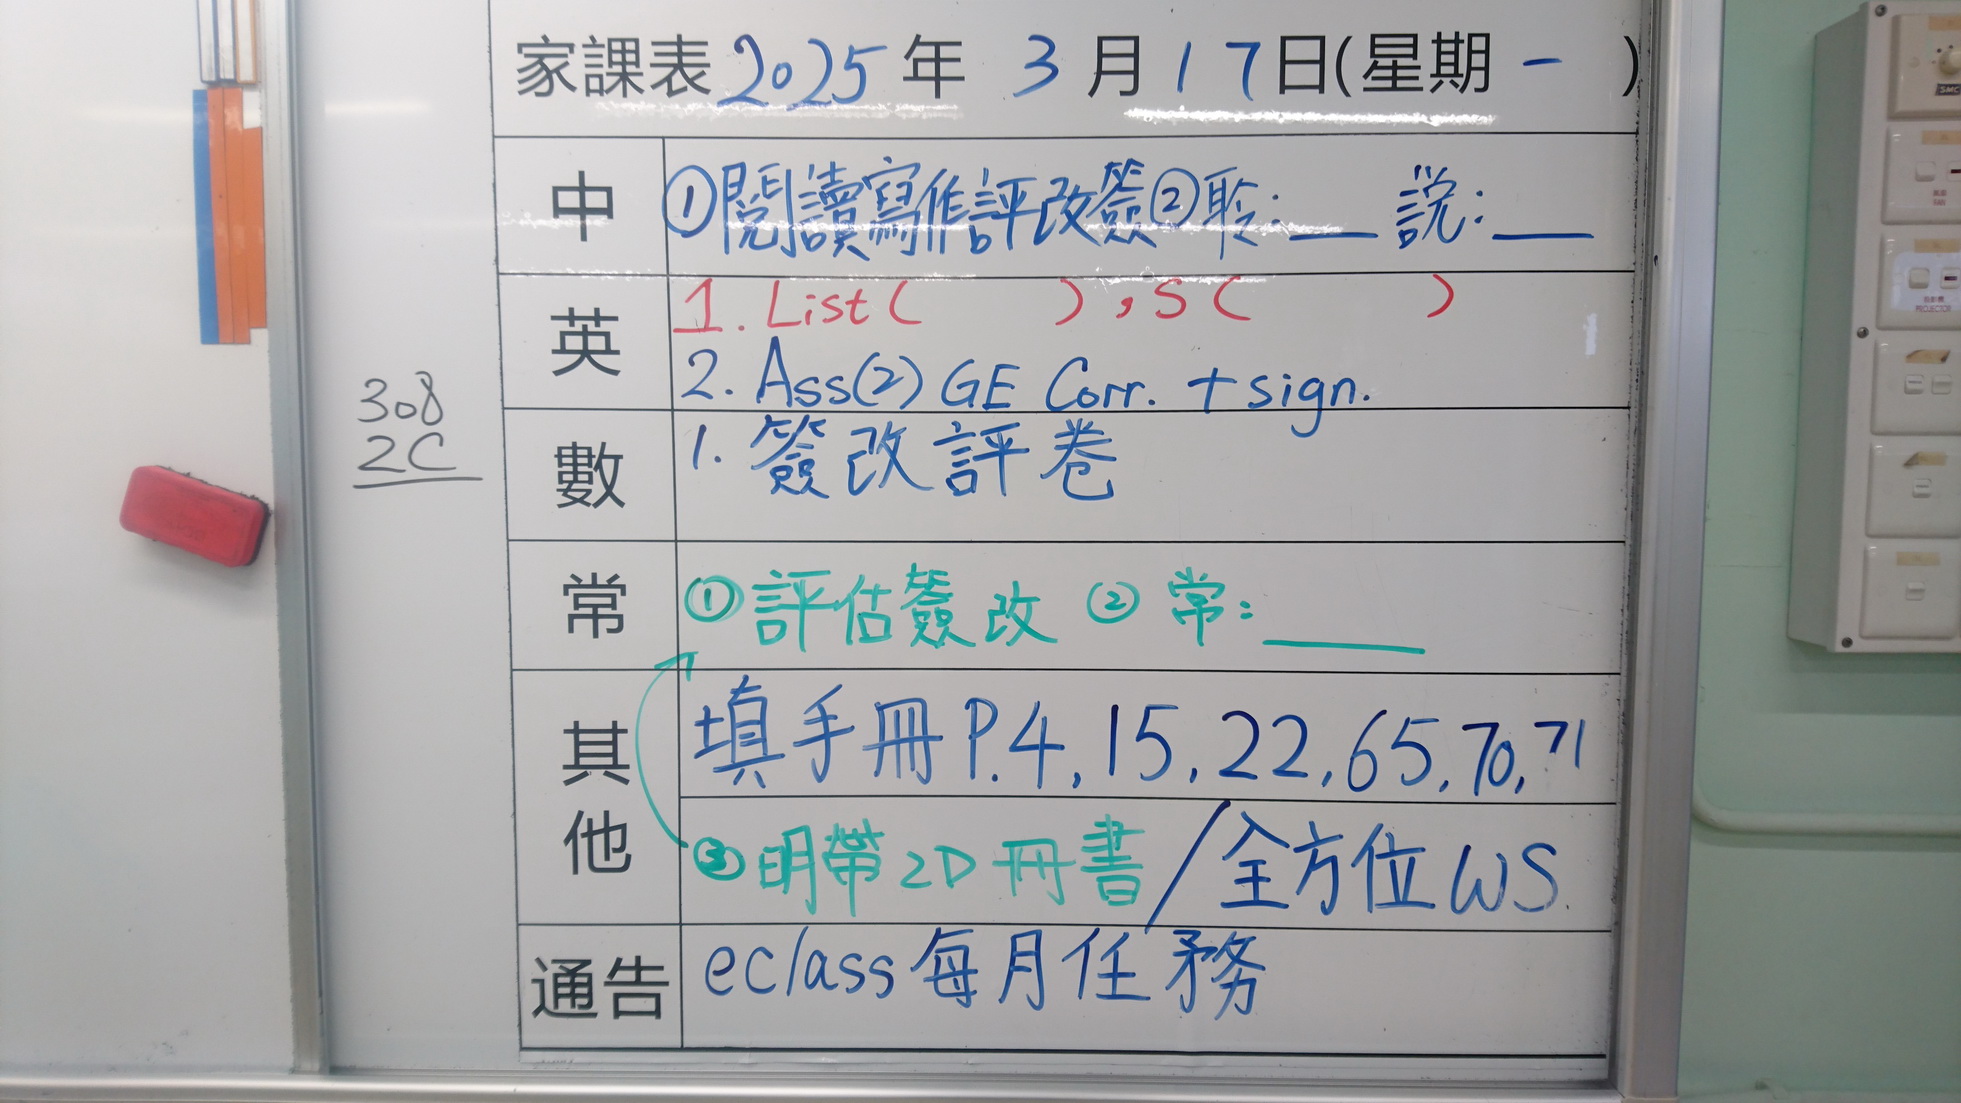 家課表2025年 3月17日(星期一 )
中 ①閱讀寫作評改簽②聆:__ 說:__
英 1. List( ), S( )
2. Ass(2) GE Corr. + sign.
數 1. 簽改評卷
308
2C
常 ①評估簽改 ②常:____
其他 填手冊P.4, 15, 22, 65, 70, 71
③明帶2D冊書/全方位WS.
通告 eclass每月任務